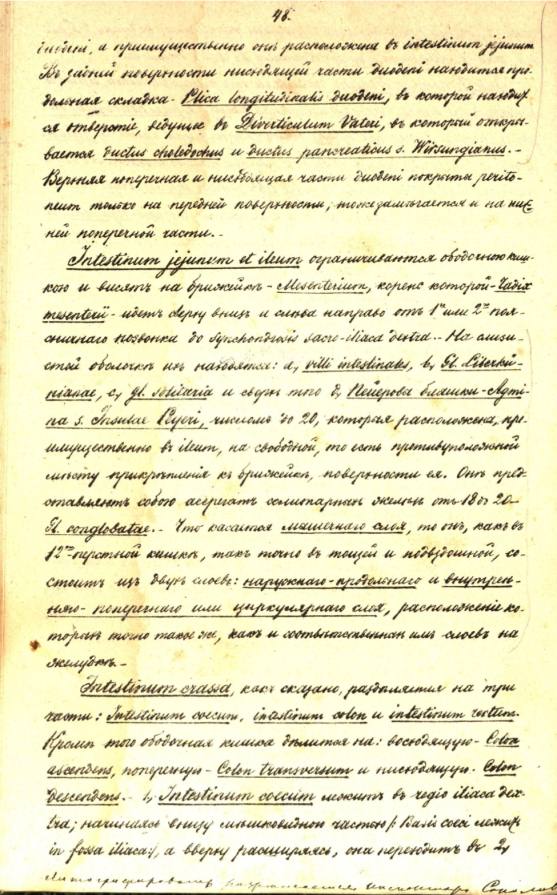 48.
duodeni, а преимущественно онѣ расположена въ intestinum jejunum
Въ задней поверхности нисходящей части duodeni находится про-
дольная складка - Plica longitudinalis duodeni, въ которой находит-
ся отверстіе, ведущее въ Diverticulum Vateri, въ который откры-
вается ductus choledochus и ductus pancreaticus s. Wirsungianus. -
Верхняя поперечная и нисходящая части duodeni покрыты perito-
neum только на передней поверхности; тоже замѣчается и на ниж-
ней поперечной части. -
Intestinum jejunum et ileum ограничиваются ободочною киш-
кою и висятъ на брыжейкѣ - Mesenterium, корень которой - Radix
mesenterii - идетъ сверху внизъ и слѣва направо отъ 1го или 2го пояс-
ничнаго позвонка до Synchondrosis sacro-iliaca dextra. - На слизи-
стой оболочкѣ ихъ находятся: a, villi intestinales, b, Gl. Lieberkü-
nianae, c, gl. solitaria и сверхъ того d, Пейеровы бляшки - Agmi-
na s. Insulae Peyeri, числомъ до 20, которыя расположены, пре-
имущественно въ ileum, на свободной, то есть противуположной
мѣсту прикрѣпленія къ брыжейкѣ, поверхности ея. Онѣ пред-
ставляютъ собою аггрегатъ солитарныхъ железъ отъ 18 до 20 -
Gl. conglobatae. - Что касается мышечнаго слоя, то онъ, какъ въ
12ти-перстной кишкѣ, такъ точно въ тощей и подвздошной, со-
стоитъ изъ двухъ слоевъ: наружнаго - продольнаго и внутрен-
няго - поперечнаго или циркулярнаго слоя, расположеніе ко-
торыхъ точно такое же, какъ и соотвѣтственныхъ имъ слоевъ на
желудкѣ. -
Intestinum crassa, какъ сказано, раздѣляется на три
части: Intestinum coecum, intestinum colon и intestinum rectum.
Кромѣ того ободочная кишка дѣлится на: восходящую - Colon
ascendens, поперечную - Colon transversum и нисходящую - Colon
descendens. - 1, Intestinum coecum лежитъ въ regio iliaca dex-
tra; начинаясь внизу мѣшковидною частью (: Basis coeci лежитъ
in fossa iliaca:), а вверху расширяясь, она переходитъ въ 2,
Литографировать разрѣшается. Инспекторъ